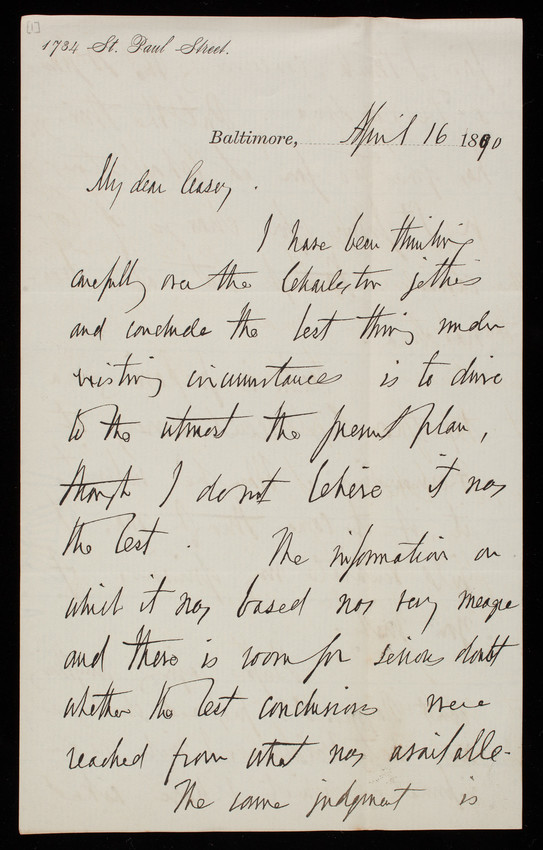 [1]
1734 St. Paul Street.
Baltimore, April 16 1890
My dear Casey.
I have been thinking
carefully over the Charleston jetties
and conclude the best thing under
existing circumstances is to drive
to the utmost the present plan,
though I do not believe it was
the best. The information on
which it was based was very meagre
and there is room for serious doubt
whether the best conclusions were
reached from what was available.
The same judgment is